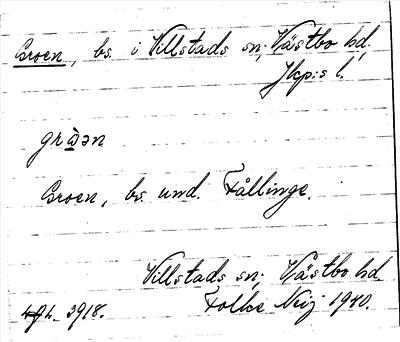 Groen, bs. i Villstads sn; Västbo hd,
Jkp:s l.
gràən
Groen, bs. und. Fållinge.
Villstads sn; Västbo hd
3918. Folke Nerj 1940.